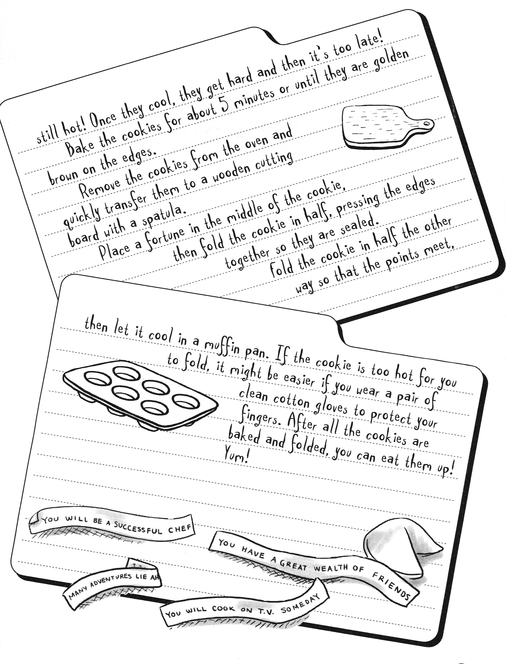 still hot! Once they cool, they get hard and then it's too late!
Bake the cookies for about 5 minutes or until they are golden
brown on the edges.
Remove the cookies from the oven and
quickly transfer them to a wooden cutting
board with a spatula.
Place a fortune in the middle of the cookie,
then fold the cookie in half, pressing the edges
together so they are sealed.
fold the cookie in half the other
way so that the points meet,
then let it cool in a muffin pan. If the cookie is too hot for you
to fold, it might be easier if you wear a pair of
clean cotton gloves to protect your
fingers. After all the cookies are
baked and folded, you can eat them up!
Yum!
YOU WILL BE A SUCCESSFUL CHEF
YOU HAVE A GREAT WEALTH OF FRIENDS
MANY ADVENTURES LIE AH
YOU WILL COOK ON T.V. SOMEDAY